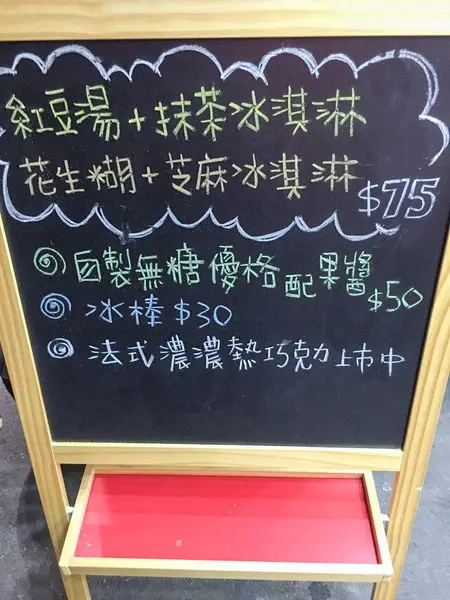 紅豆湯+抹茶冰淇淋
花生糊+芝麻冰淇淋 $75
自製無糖優格 配果醬 $50
冰棒 $30
法式濃濃熱巧克力上市中